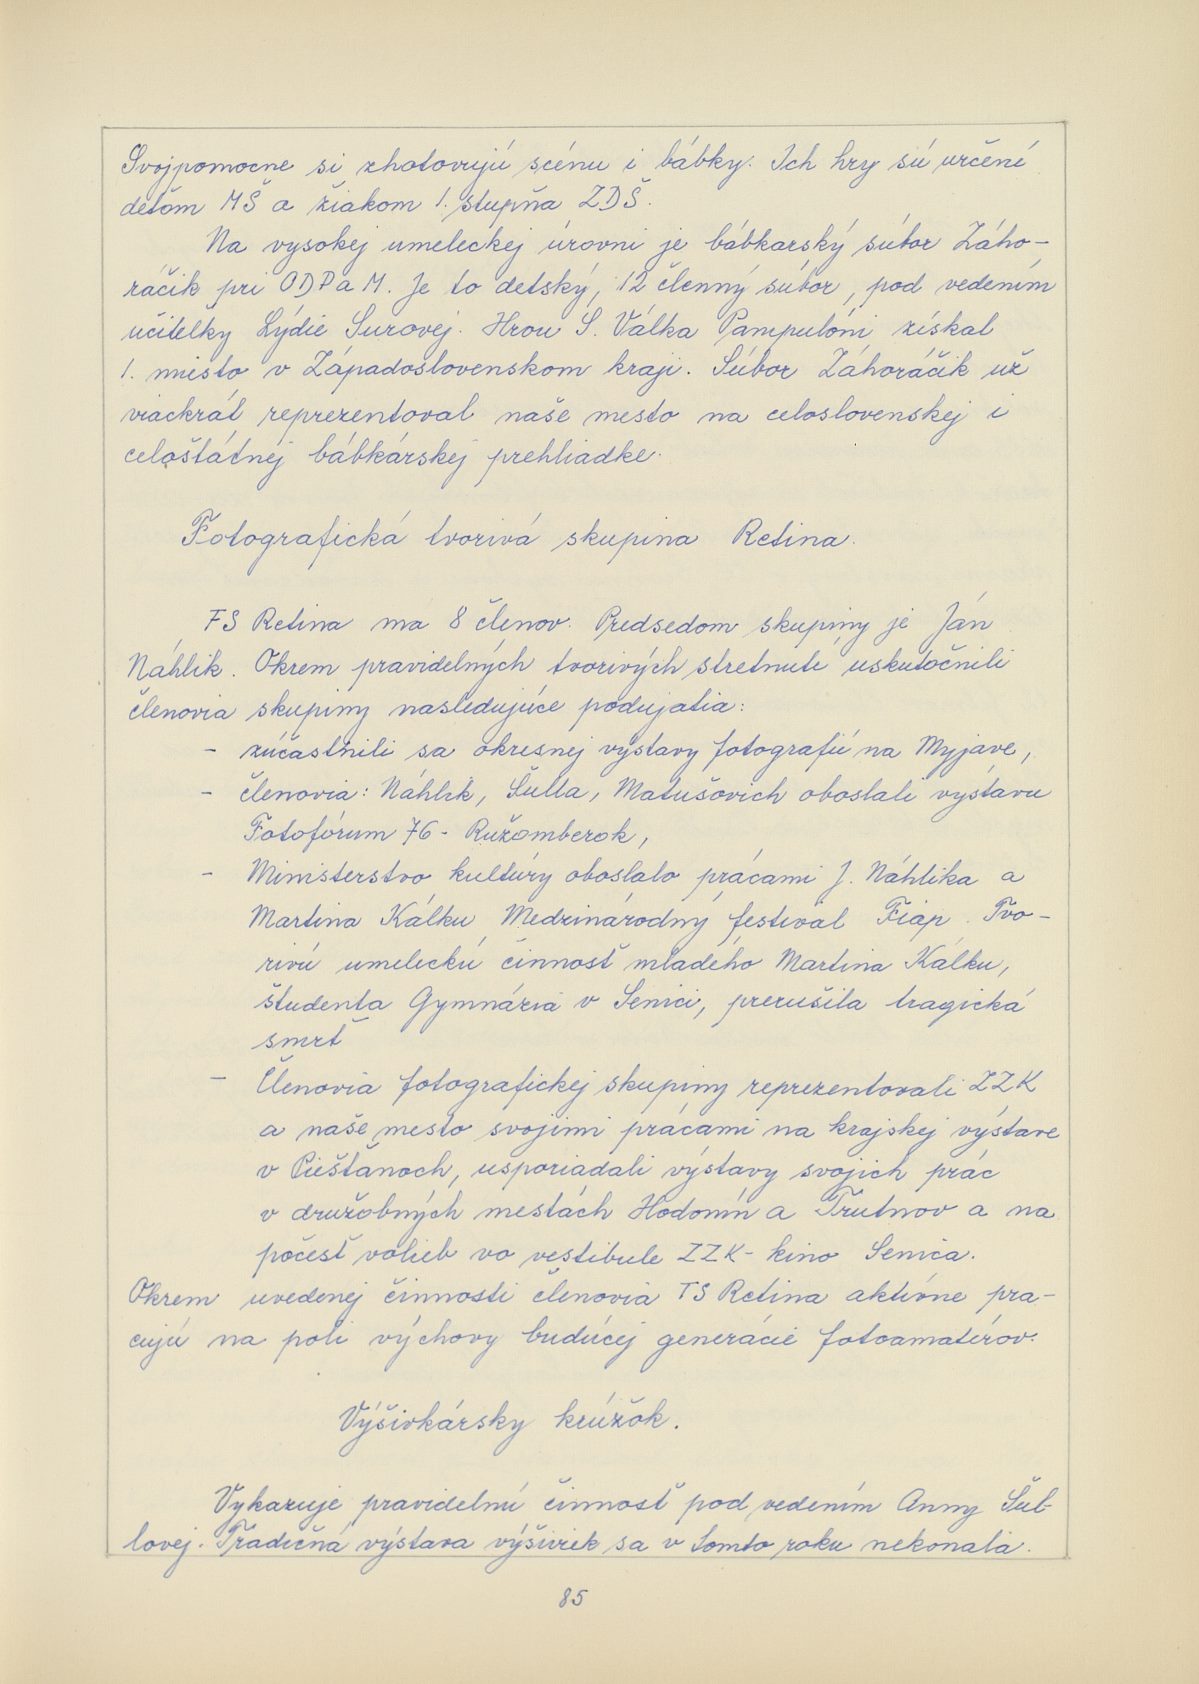 Svojpomocne si zhotovujú scénu i bábky. Ich hry sú určené
deťom MŠ a žiakom 1. stupňa ZDŠ.
Na vysokej umeleckej úrovni je bábkarský súbor Záho-
ráčik pri ODPaM. Je to detský, 12 členný súbor, pod vedením
učiteľky Lýdie Surovej. Hrou S. Válka Pampulóni získal
1. miesto v Západoslovenskom kraji. Súbor Záhoráčik už
viackrát reprezentoval naše mesto na celoslovenskej i
celoštátnej bábkárskej prehliadke.
Fotografická tvorivá skupina Retina.
FS Retina ma 8 členov. Predsedom skupiny je Ján
Náhlik. Okrem pravidelných tvorivých stretnutí uskutočnili
členovia skupiny nasledujúce podujatia:
- zúčastnili sa okresnej výstavy fotografií na Myjave,
- členovia: Náhlik, Šulla, Matušovich oboslali výstavu
Fotofórum 76 - Ružomberok,
- Ministerstvo kultúry oboslalo prácami J. Náhlika a
Martina Kálku Medzinárodný festival Fiap. Tvo-
rivú umeleckú činnosť mladého Martina Kálku,
študenta Gymnázia v Senici, prerušila tragická
smrť
- Členovia fotografickej skupiny reprezentovali ZZK
a naše mesto svojimi prácami na krajskej výstave
v Piešťanoch, usporiadali výstavy svojich prác
v družobných mestách Hodonín a Trutnov a na
počesť volieb vo vestibule ZZK - kino Senica.
Okrem uvedenej činnosti členovia TS Retina aktívne pra-
cujú na poli výchovy budúcej generácie fotoamatérov.
Výšivkársky krúžok.
Vykazuje pravidelnú činnosť pod vedením Anny Šul-
lovej. Tradičná výstava výšiviek sa v tomto roku nekonala.
85